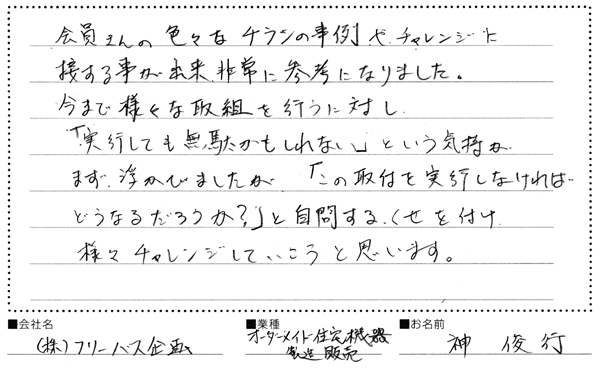 会員さんの色々なチラシの事例やチャレンジに
接する事が出来、非常に参考になりました。
今まで様々な取組を行うに対し
「実行しても無駄かもしれない」という気持が
まず浮かびましたが「この取付を実行しなければ
どうなるだろうか?」と自問する、くせを付け
様々チャレンジしていこうと思います。
■会社名 ■業種 ■お名前
(株)フリーバス企画 オーダーメイト住宅機器 神 俊行
製造販売